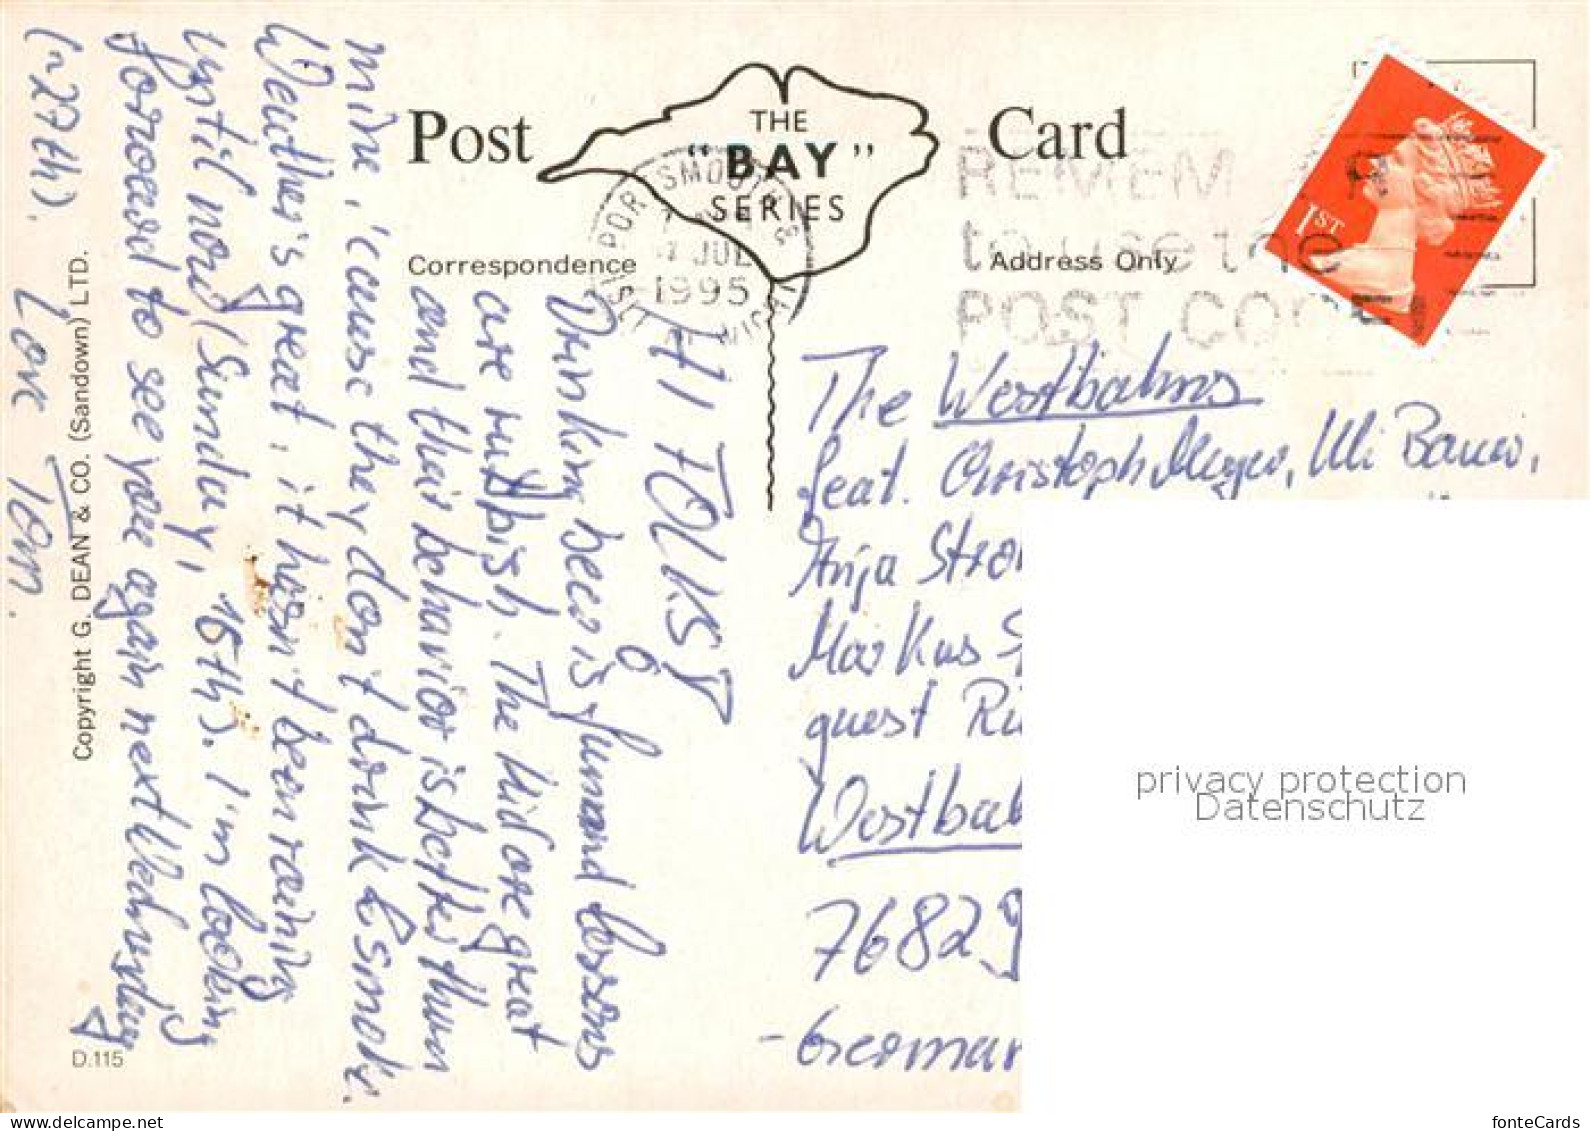 Post
THE
"BAY"
SERIES
Card
Correspondence
Address Only
PORTSMOUTH &
JUL
1995
REMEM
to use the
POST CODE
1ST
HI FOLKS!
Drinking beer is fun and lessons
are rubbish. The kids are great
and their behavior is better than
mine, 'cause they don't drink & smoke.
Weather's great, it hasn't been raining
until now (Sunday, 16th). I'm looking
forward to see you again next Wednesday
(~27th).
Love Tom.
Copyright G. DEAN & CO. (Sandown) LTD.
D.115
The Westbahns
feat. Christoph Meyer, Uli Bauer,
Anja
Markus
guest
7682
- German
privacy protection
Datenschutz
fonteCards